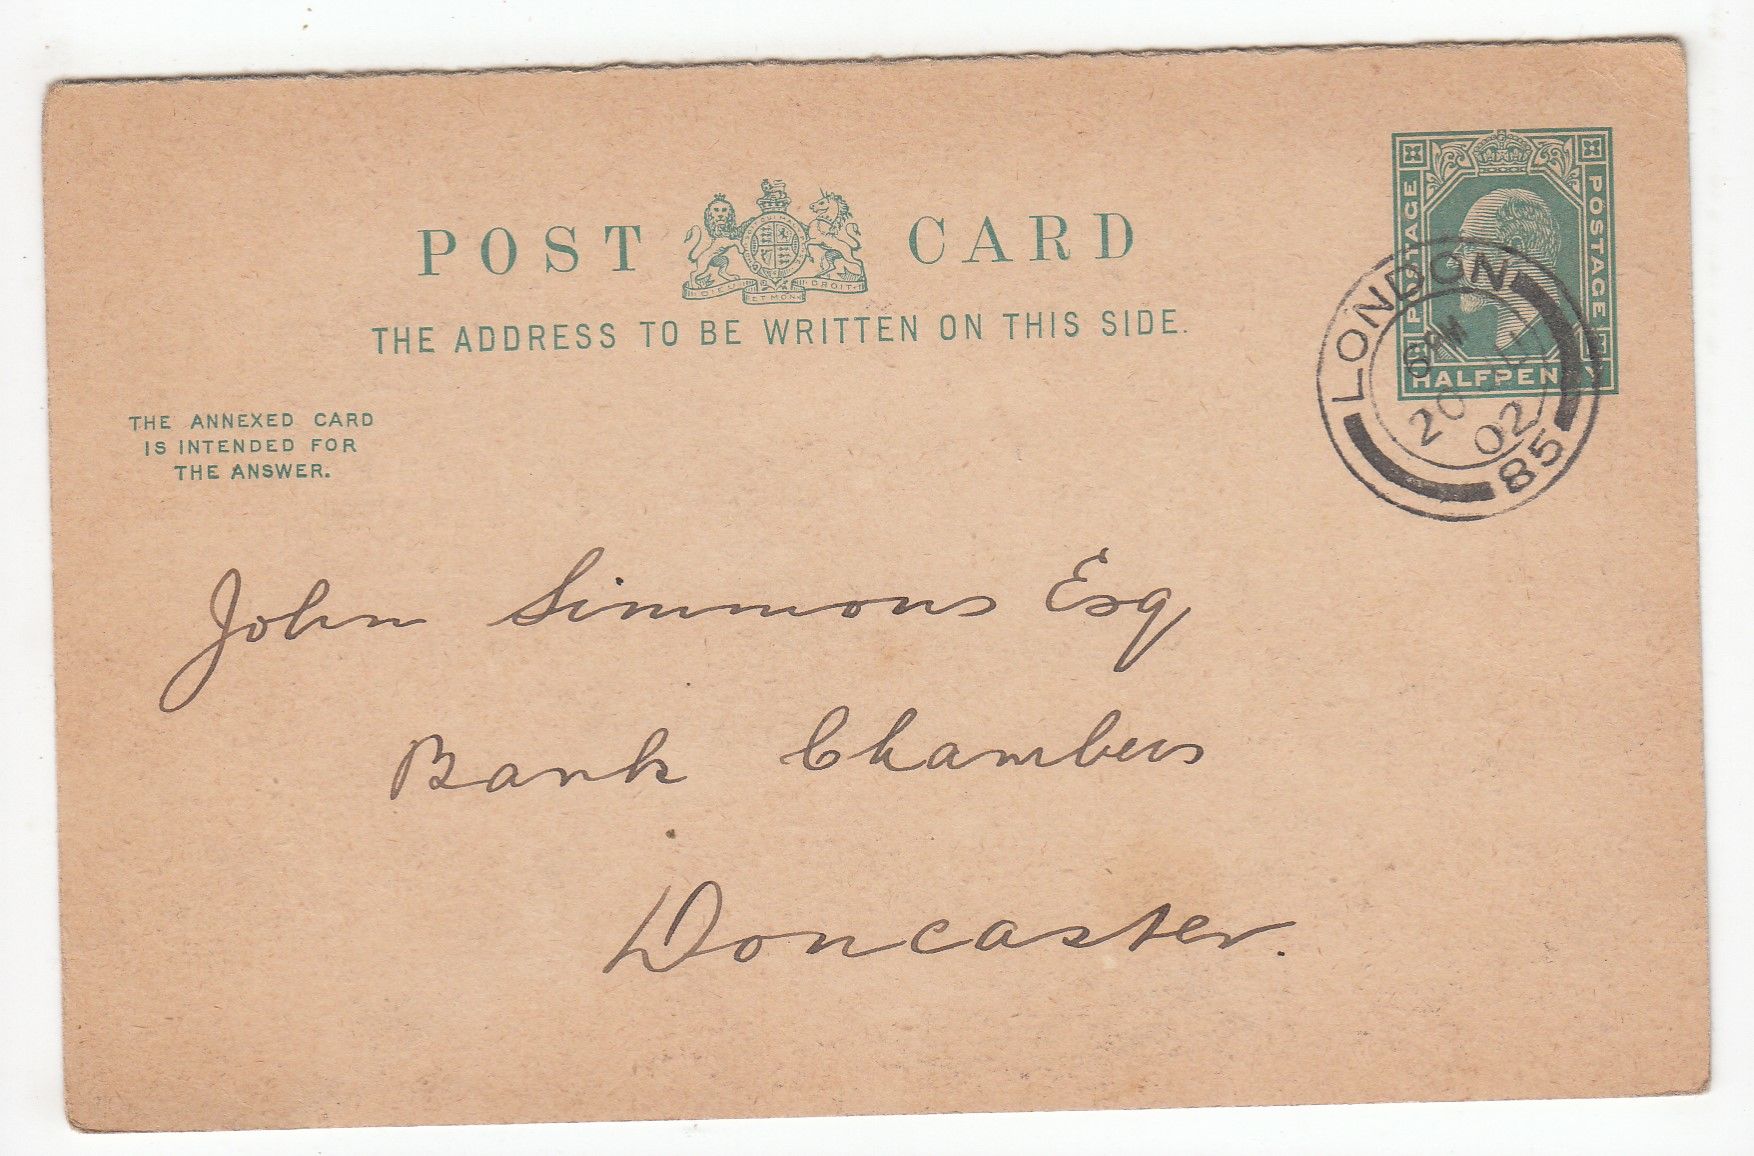 POST CARD
DIEU ET MON DROIT
THE ADDRESS TO BE WRITTEN ON THIS SIDE.
POSTAGE POSTAGE
HALFPENNY
LONDON
6 PM
20
02
85
THE ANNEXED CARD
IS INTENDED FOR
THE ANSWER.
John Simmons Esq
Bank Chambers
Doncaster.